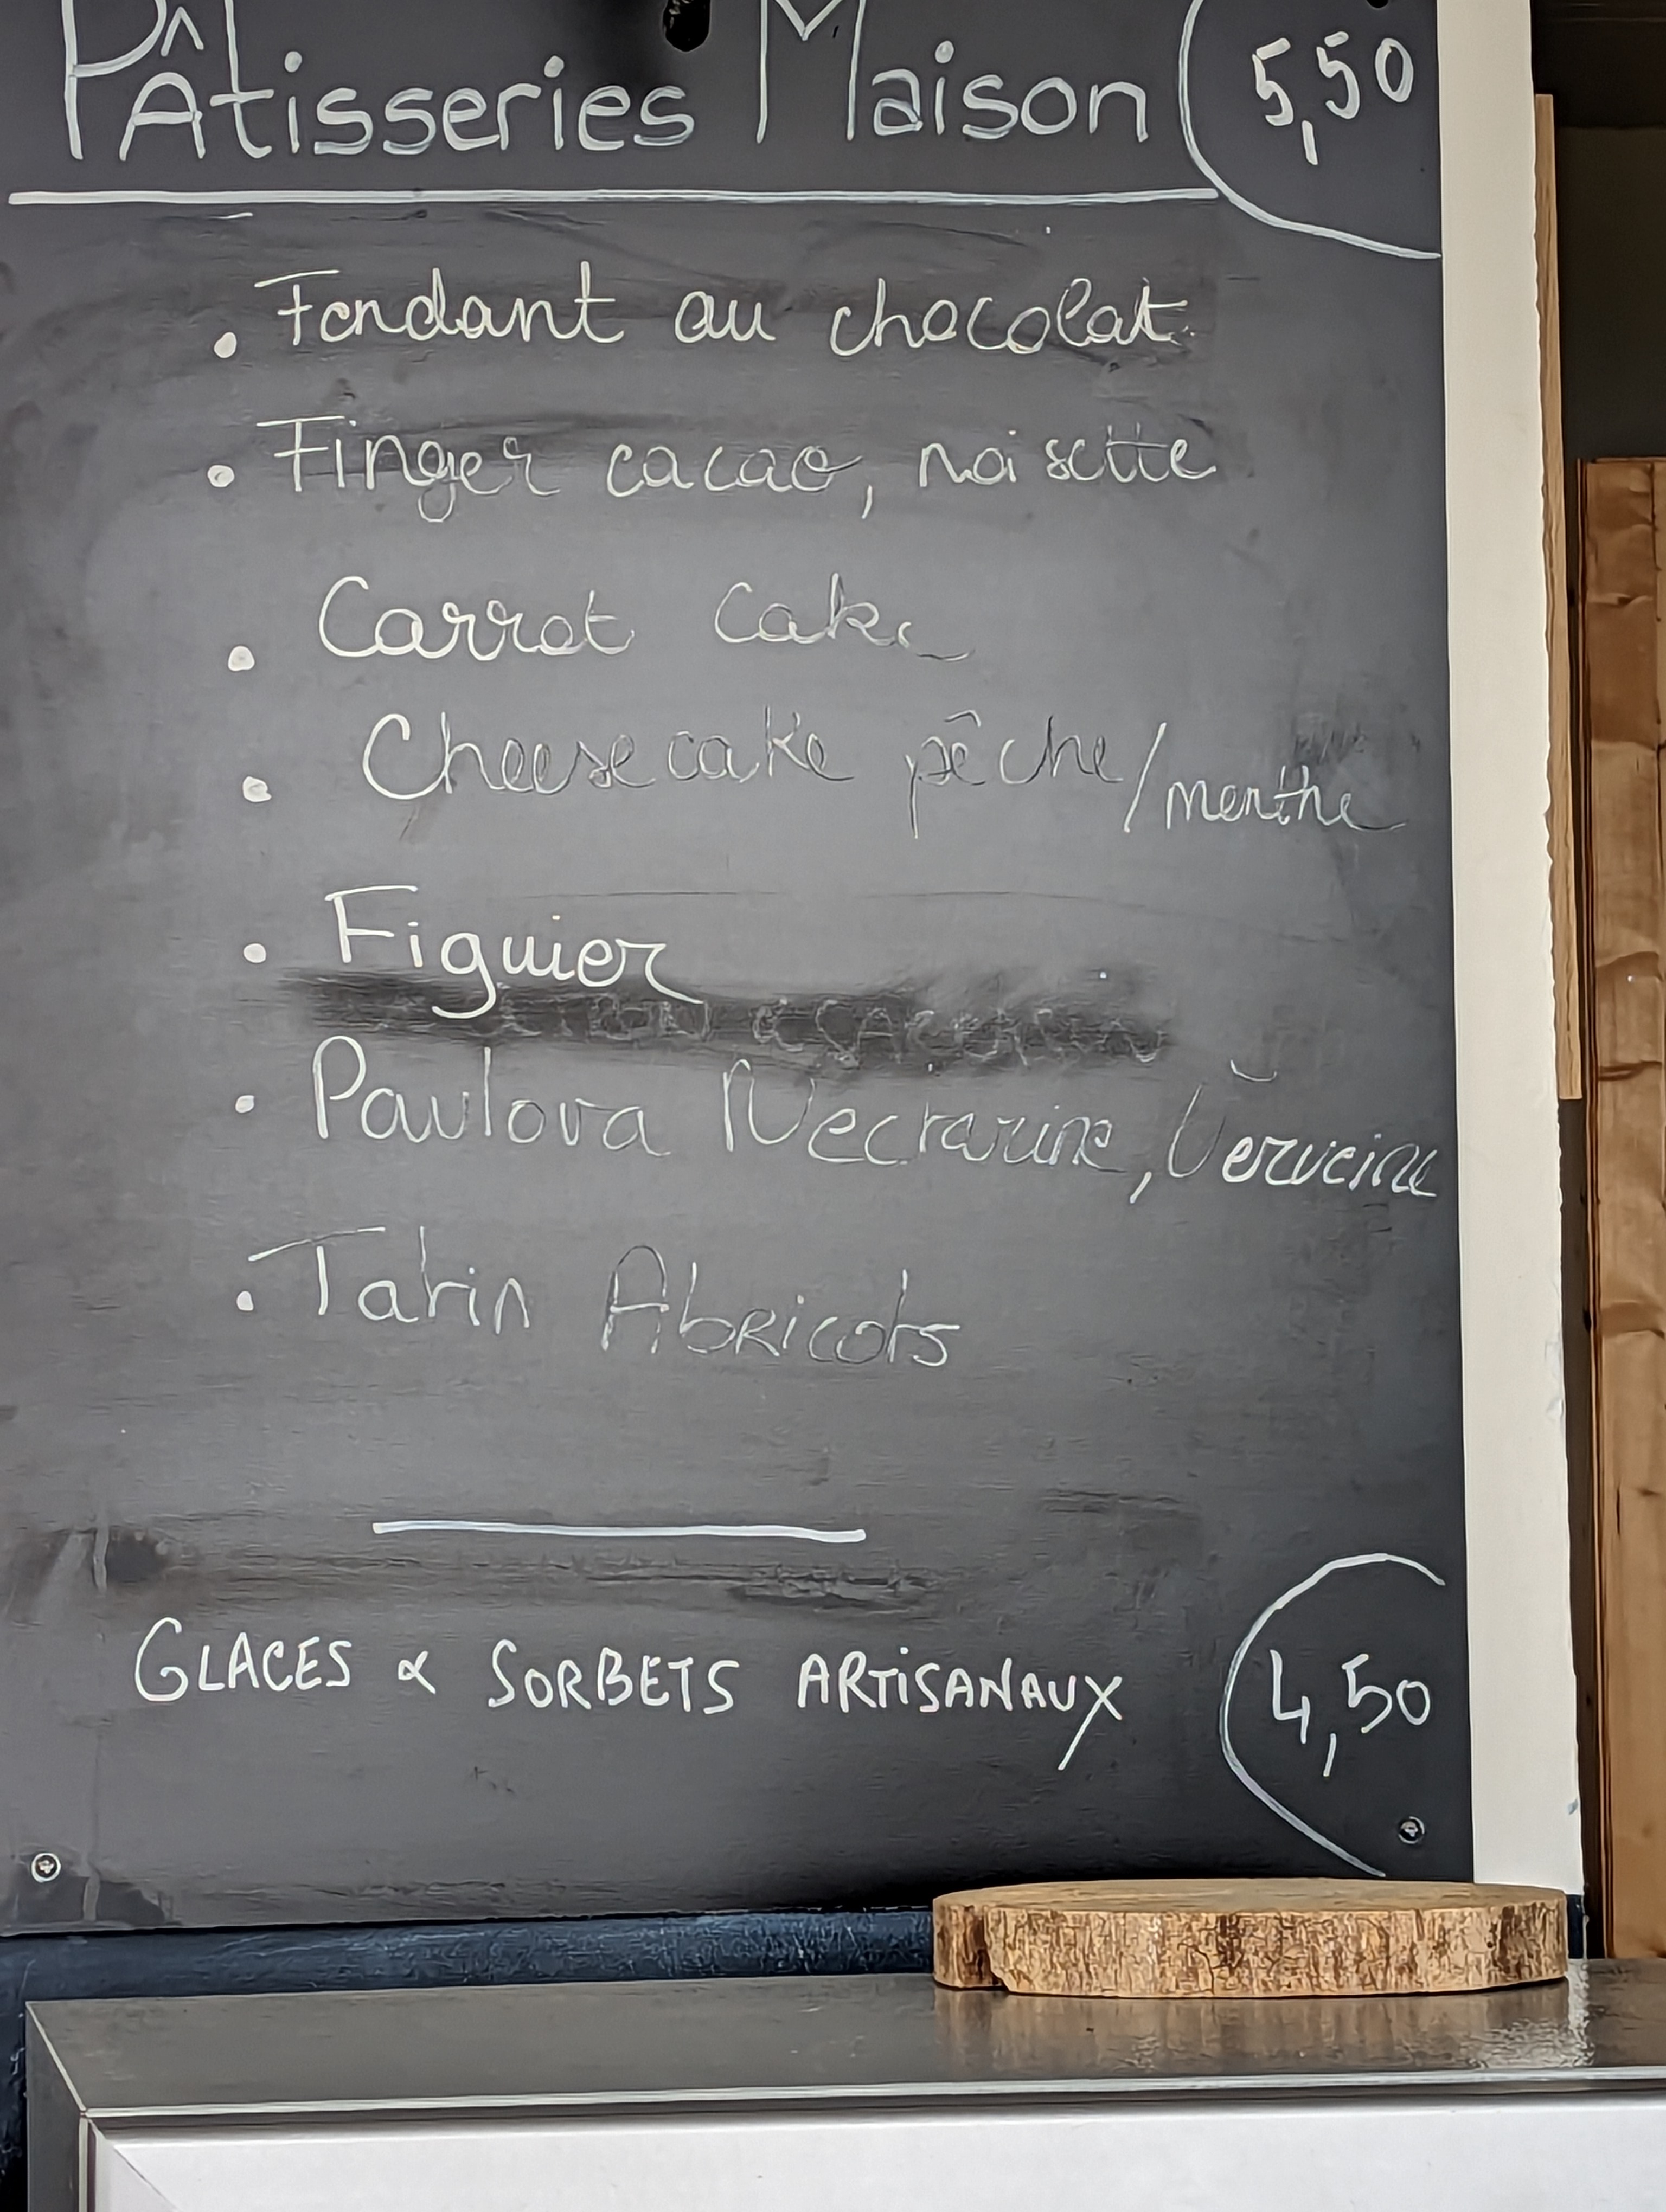 Pâtisseries Maison 5,50
• Fondant au chocolat
• Finger cacao, noisette
• Carrot Cake
• Cheesecake pêche/menthe
• Figuier
• Pavlova Nectarine, Verveine
• Tatin Abricots
GLACES & SORBETS ARTISANAUX 4,50